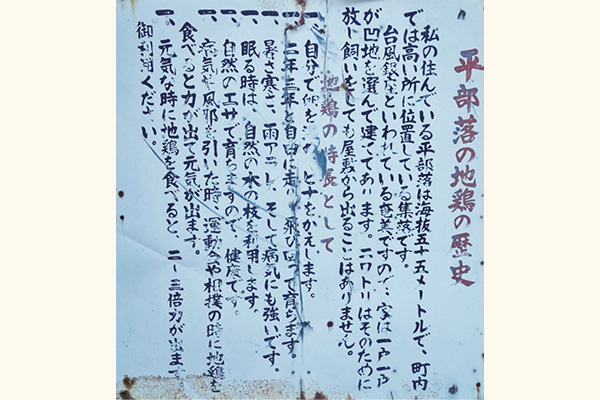 平部落の地鶏の歴史
私の住んでいる平部落は海抜五十五メートルで、町内
では高い所に位置している集落です。
台風銀座といわれている奄美ですので、家は一戸一戸
が凹地を選んで建ててあります。ニワトリはそのために
放し飼いをしても屋敷から出ることはありません。
地鶏の特長として
一、自分で卵を ヒナをかえします。
一、二年三年と自由に走り飛び回って育ちます。
一、暑さ寒さ、雨アラレ、そして病気にも強いです。
一、眠る時は、自然の木の枝を利用します。
一、自然のエサで育ちますので、健康です。
一、病気や風邪を引いた時、運動会や相撲の時に地鶏を
食べると力が出て元気が出ます。
一、元気な時に地鶏を食べると、二〜三倍力が出ます。
御利用ください。